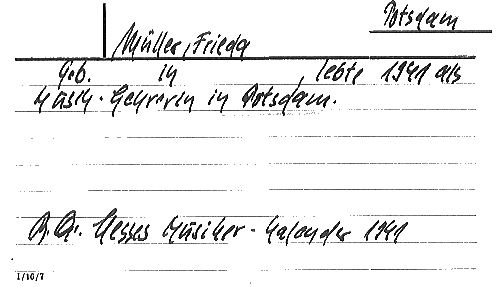 Potsdam
Müller, Frieda
Geb. in , lebte 1941 als
Musik-Lehrerin in Potsdam.
Hesses Musiker-Kalender 1941
1/10/7